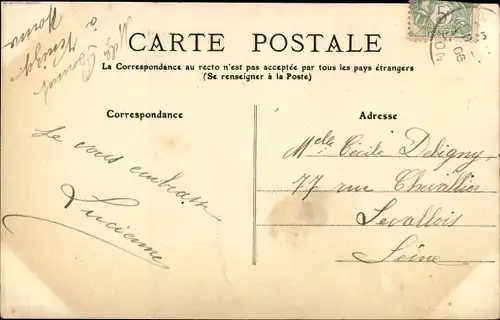 CARTE POSTALE
La Correspondance au recto n'est pas acceptée par tous les pays étrangers
(Se renseigner à la Poste)
Correspondance
Adresse
Je vous embrasse
Lucienne
Melle Cécile Debigny
77 rue Chevallier
Levallois
Seine
5